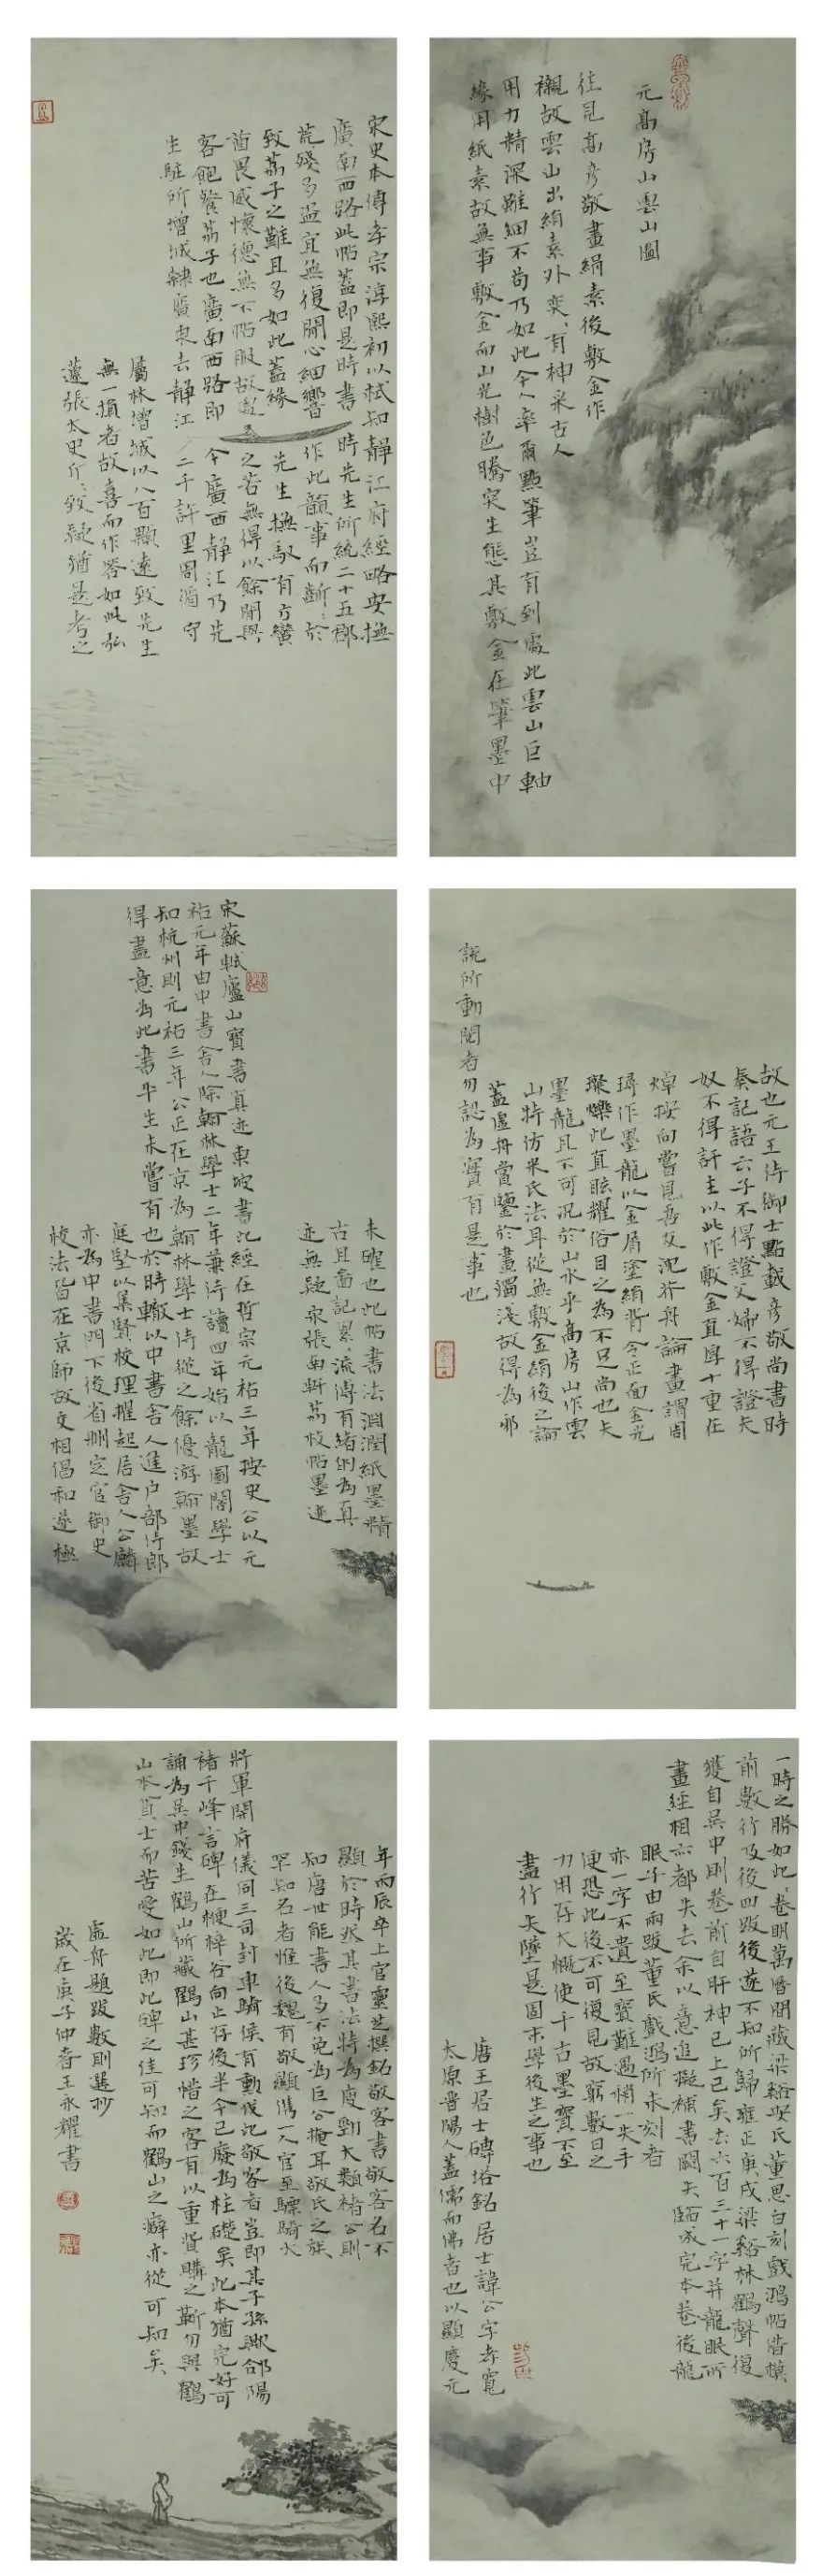 元高房山雲山圖
往見高彥敬畫絹素後敷金作
襯故雲山出絹素外奕、有神采古人
用力精深雖細不苟乃如此今人率爾點筆豈有到處此雲山巨軸
緣用紙素故無事敷金而山光樹色騰突生態其敷金在筆墨中
宋史本傳孝宗淳熙初以栻知靜江府經略安撫
廣南西路此帖蓋即是時書時先生所統二十五郡
荒殘多盜宜無復閒心細響作此韻事而齗、於
致荔子之難且多如此蓋緣先生撫馭有方蠻
酋畏威懷德無不帖服故處之若無得以餘閒與
客飽餐荔子也廣南西路即今廣西靜江乃先
生駐所增城隸廣東去靜江二千許里周循守
屬林增城以八百顆遠致先生
無一損者故喜而作答如此弘
蘧張太史斤、致疑猶是考之
故也元王侍御士點載彥敬尚書時
奏記語云子不得證父婦不得證夫
奴不得訐主以此作敷金直厚十重在
焯按向嘗見吾友沈芥舟論畫謂周
璕作墨龍以金屑塗絹背令正面金光
璨爍此直眩耀俗目之為不足尚也夫
墨龍且不可況於山水乎高房山作雲
山特仿米氏法耳從無敷金絹後之論
蓋虛舟賞鑒於畫獨淺故得為邪
說所動閱者勿認為實有是事也
未確也此帖書法淵潤紙墨精
古且啚記累、流傳有緒的為真
迹無疑宋張南軒荔枝帖墨迹
宋蘇軾廬山寶書真迹東坡書此經在哲宗元祐三年按史公以元
祐元年由中書舍人除翰林學士二年兼侍讀四年始以龍圖閣學士
知杭州則元祐三年公正在京為翰林學士侍從之餘優游翰墨故
得盡意為此書平生未嘗有也於時轍以中書舍人進戶部侍郎
庭堅以集賢校理擢起居舍人公麟
亦為中書門下後省刪定官御史
檢法皆在京師故交相倡和遂極
一時之勝如此、卷明萬曆間藏梁谿安氏董思白刻戲鴻帖嘗模
前數行及後四跋後遂不知所歸雍正庚戌梁谿林鶴聲復
獲自吳中則卷前自肝神已上已矣去六百三十一字并龍眠所
畫經相亦都失去余以意追擬補書闕失臨成完本卷後龍
眠子由兩跋董氏戲鴻所未刻者
亦一字不遺至寶難遇悄一失手
便恐此後不可復見故窮數日之
力用存大概使千古墨寶不至
盡行失墜是固末學後生之事也
唐王居士磚塔銘居士諱公字孝寬
太原晉陽人蓋儒而佛者也以顯慶元
年丙辰卒上官靈芝撰銘敬客書敬客名不
顯於時然其書法特為瘦勁大類褚公則
知唐世能書人多不免為巨公掩耳敬氏之族
罕知名者惟後魏有敬顯儁一人官至驃騎大
將軍開府儀同三司封車騎侯有勳伐此敬客者豈即其子孫歟郃陽
褚千峰言碑在楩梓谷向止存後半今已廢為柱礎矣此本猶完好可
誦為吳中錢生鶴山所藏鶴山甚珍惜之客有以重貲購之靳勿與鶴
山本貧士而苦愛如此即此碑之佳可知而鶴山之癖亦從可知矣
虛舟題跋數則選抄
歲在庚子仲春王永耀書